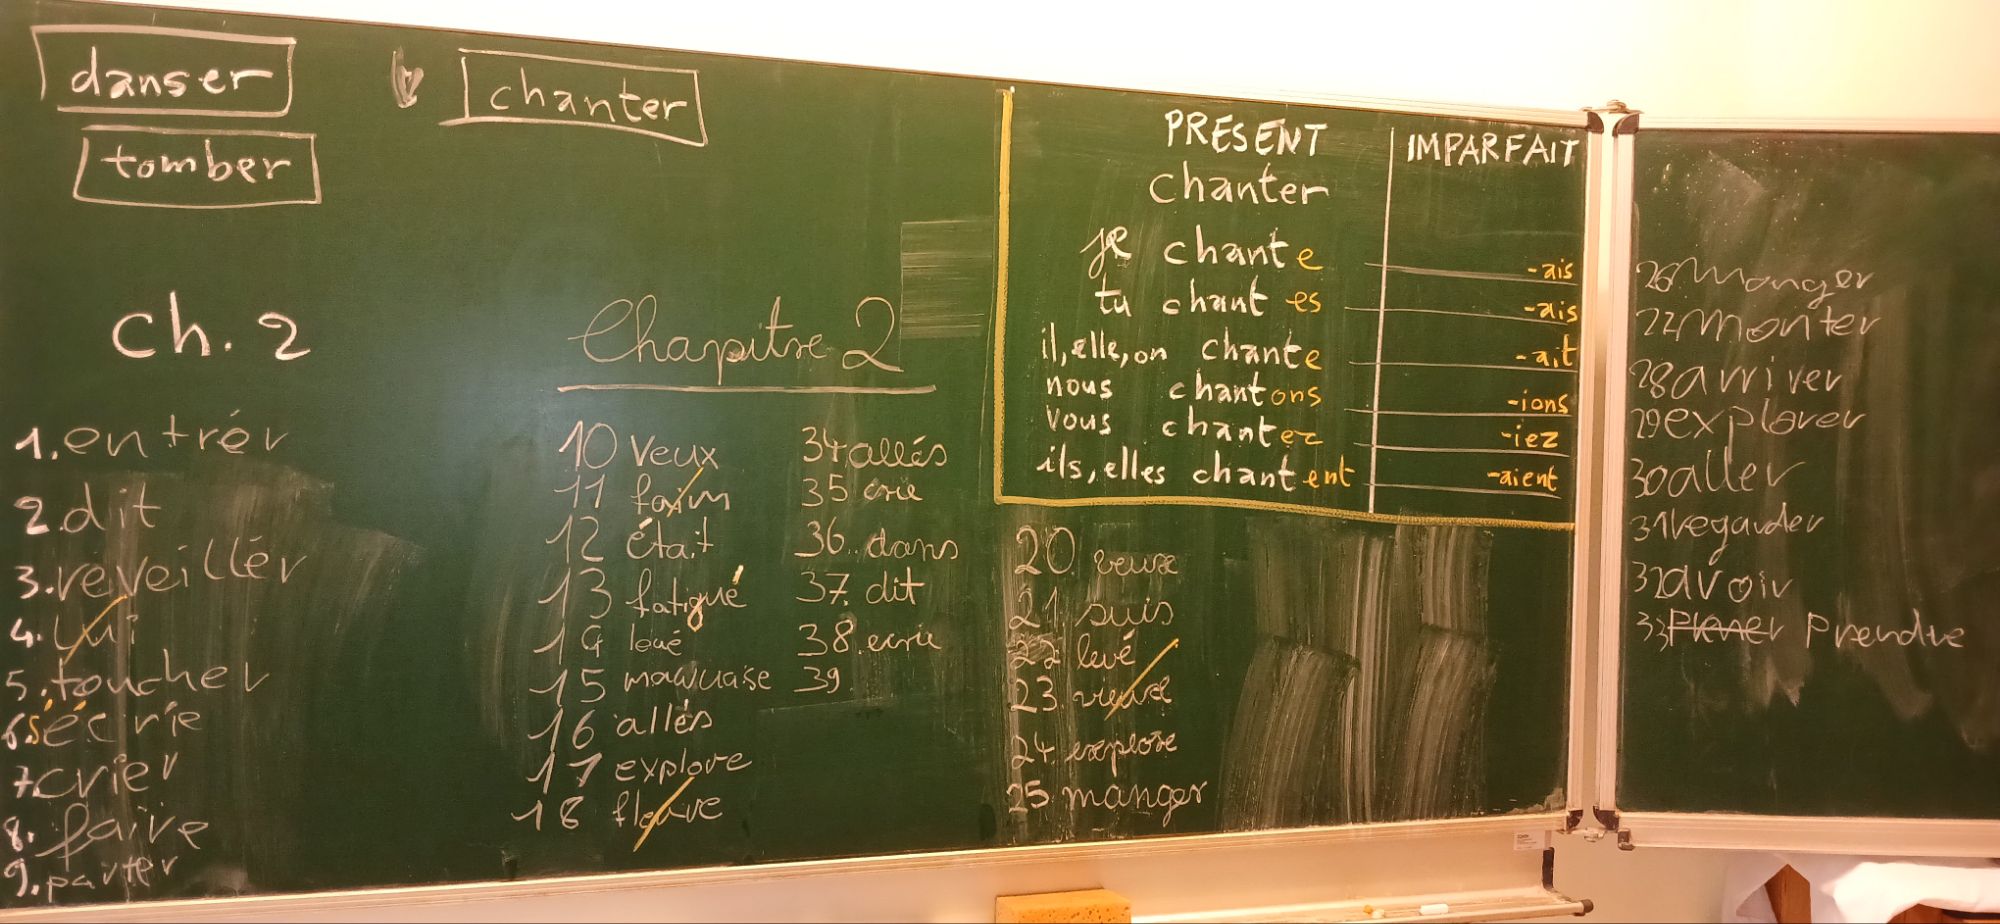 danser
chanter
tomber
ch. 2
1. entrér
2. dit
3. réveillér
4. lui
5. toucher
6 s'écrie
7 crier
8. faire
9. parter
Chapitre 2
10 veux
11 faim
12 était
13 fatigué
14 loué
15 mauvaise
16 allés
17 explore
18 fleuve
34 allés
35 crie
36. dans
37. dit
38. ecrie
39.
PRESENT
IMPARFAIT
chanter
je chante -ais
tu chantes -ais
il, elle, on chante -ait
nous chantons -ions
vous chantez -iez
ils, elles chantent -aient
20. veux
21 suis
22 levé
23. vieux
24. explore
25. manger
26. manger
27 monter
28 arriver
29 explorer
30 aller
31 regarder
32 avoir
33 prendre